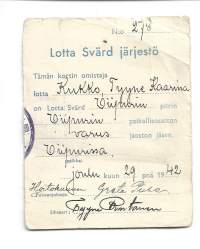 N:o 278
Lotta Svärd järjestö
Tämän kortin omistaja
lotta Kukko, Tyyne Kaarina
on Lotta Svärd Viipurin piirin
Viipurin paikallisosaston
varus jaoston jäsen.
Viipurissa,
joulu kuun 29 p:nä 1942
Greta
Tyyne